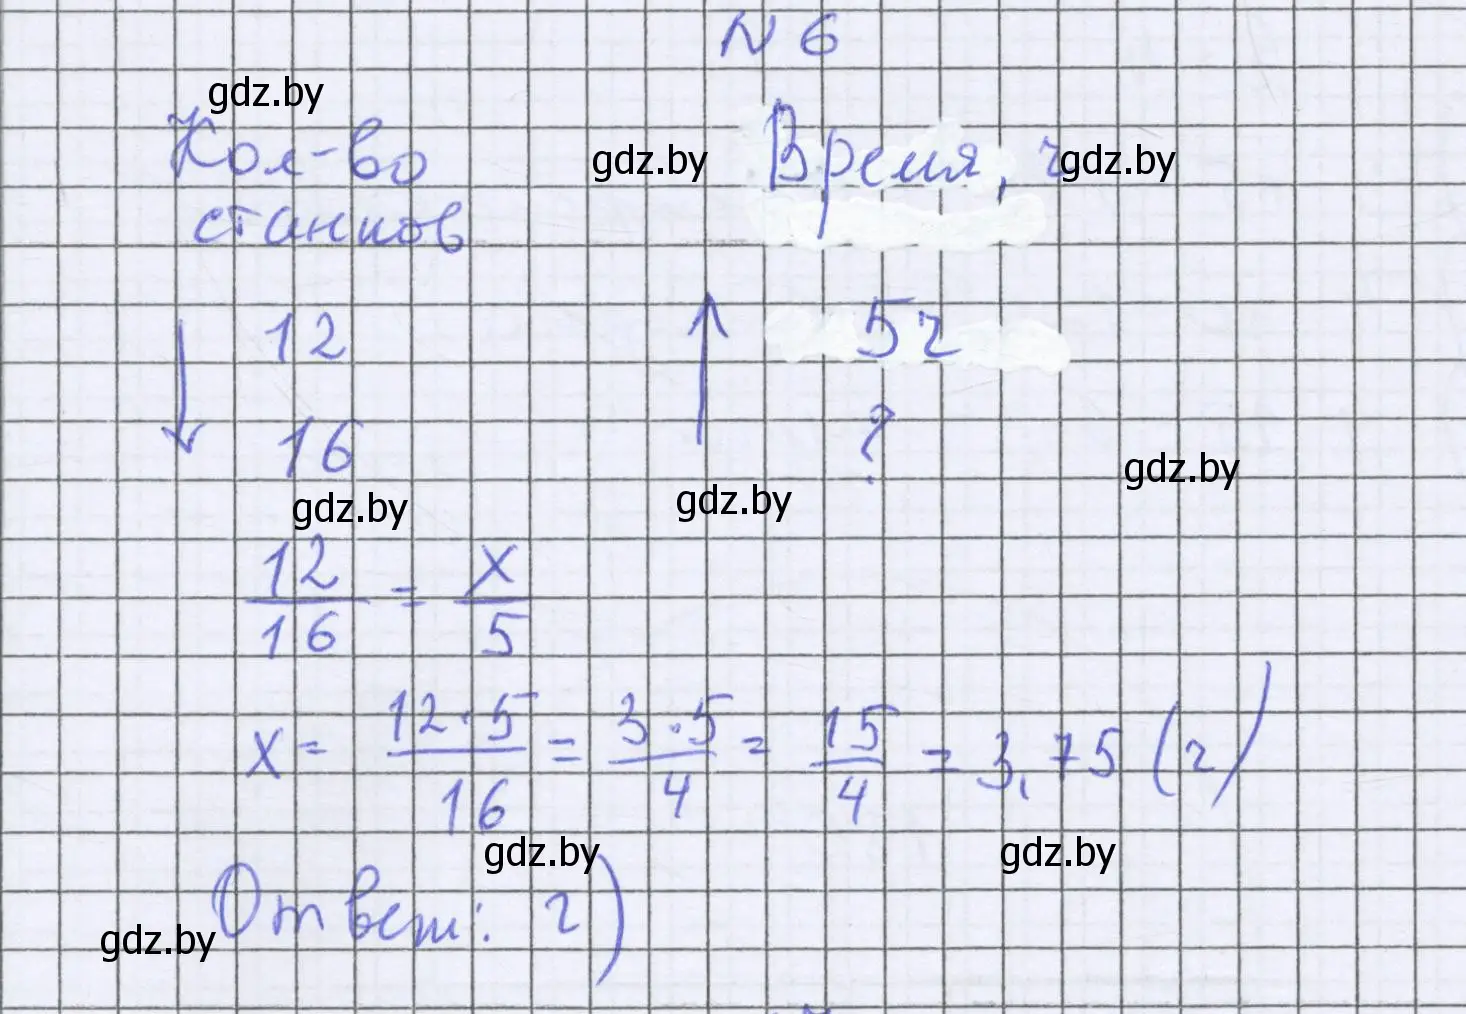 N 6
gdz.by
Кол-во
станков
gdz.by
Время, ч
gdz.by
12
5ч
16
?
gdz.by
gdz.by
gdz.by
12/16 = x/5
x = 12·5/16 = 3·5/4 = 15/4 = 3,75 (ч)
gdz.by
gdz.by
Ответ: г)
gdz.by